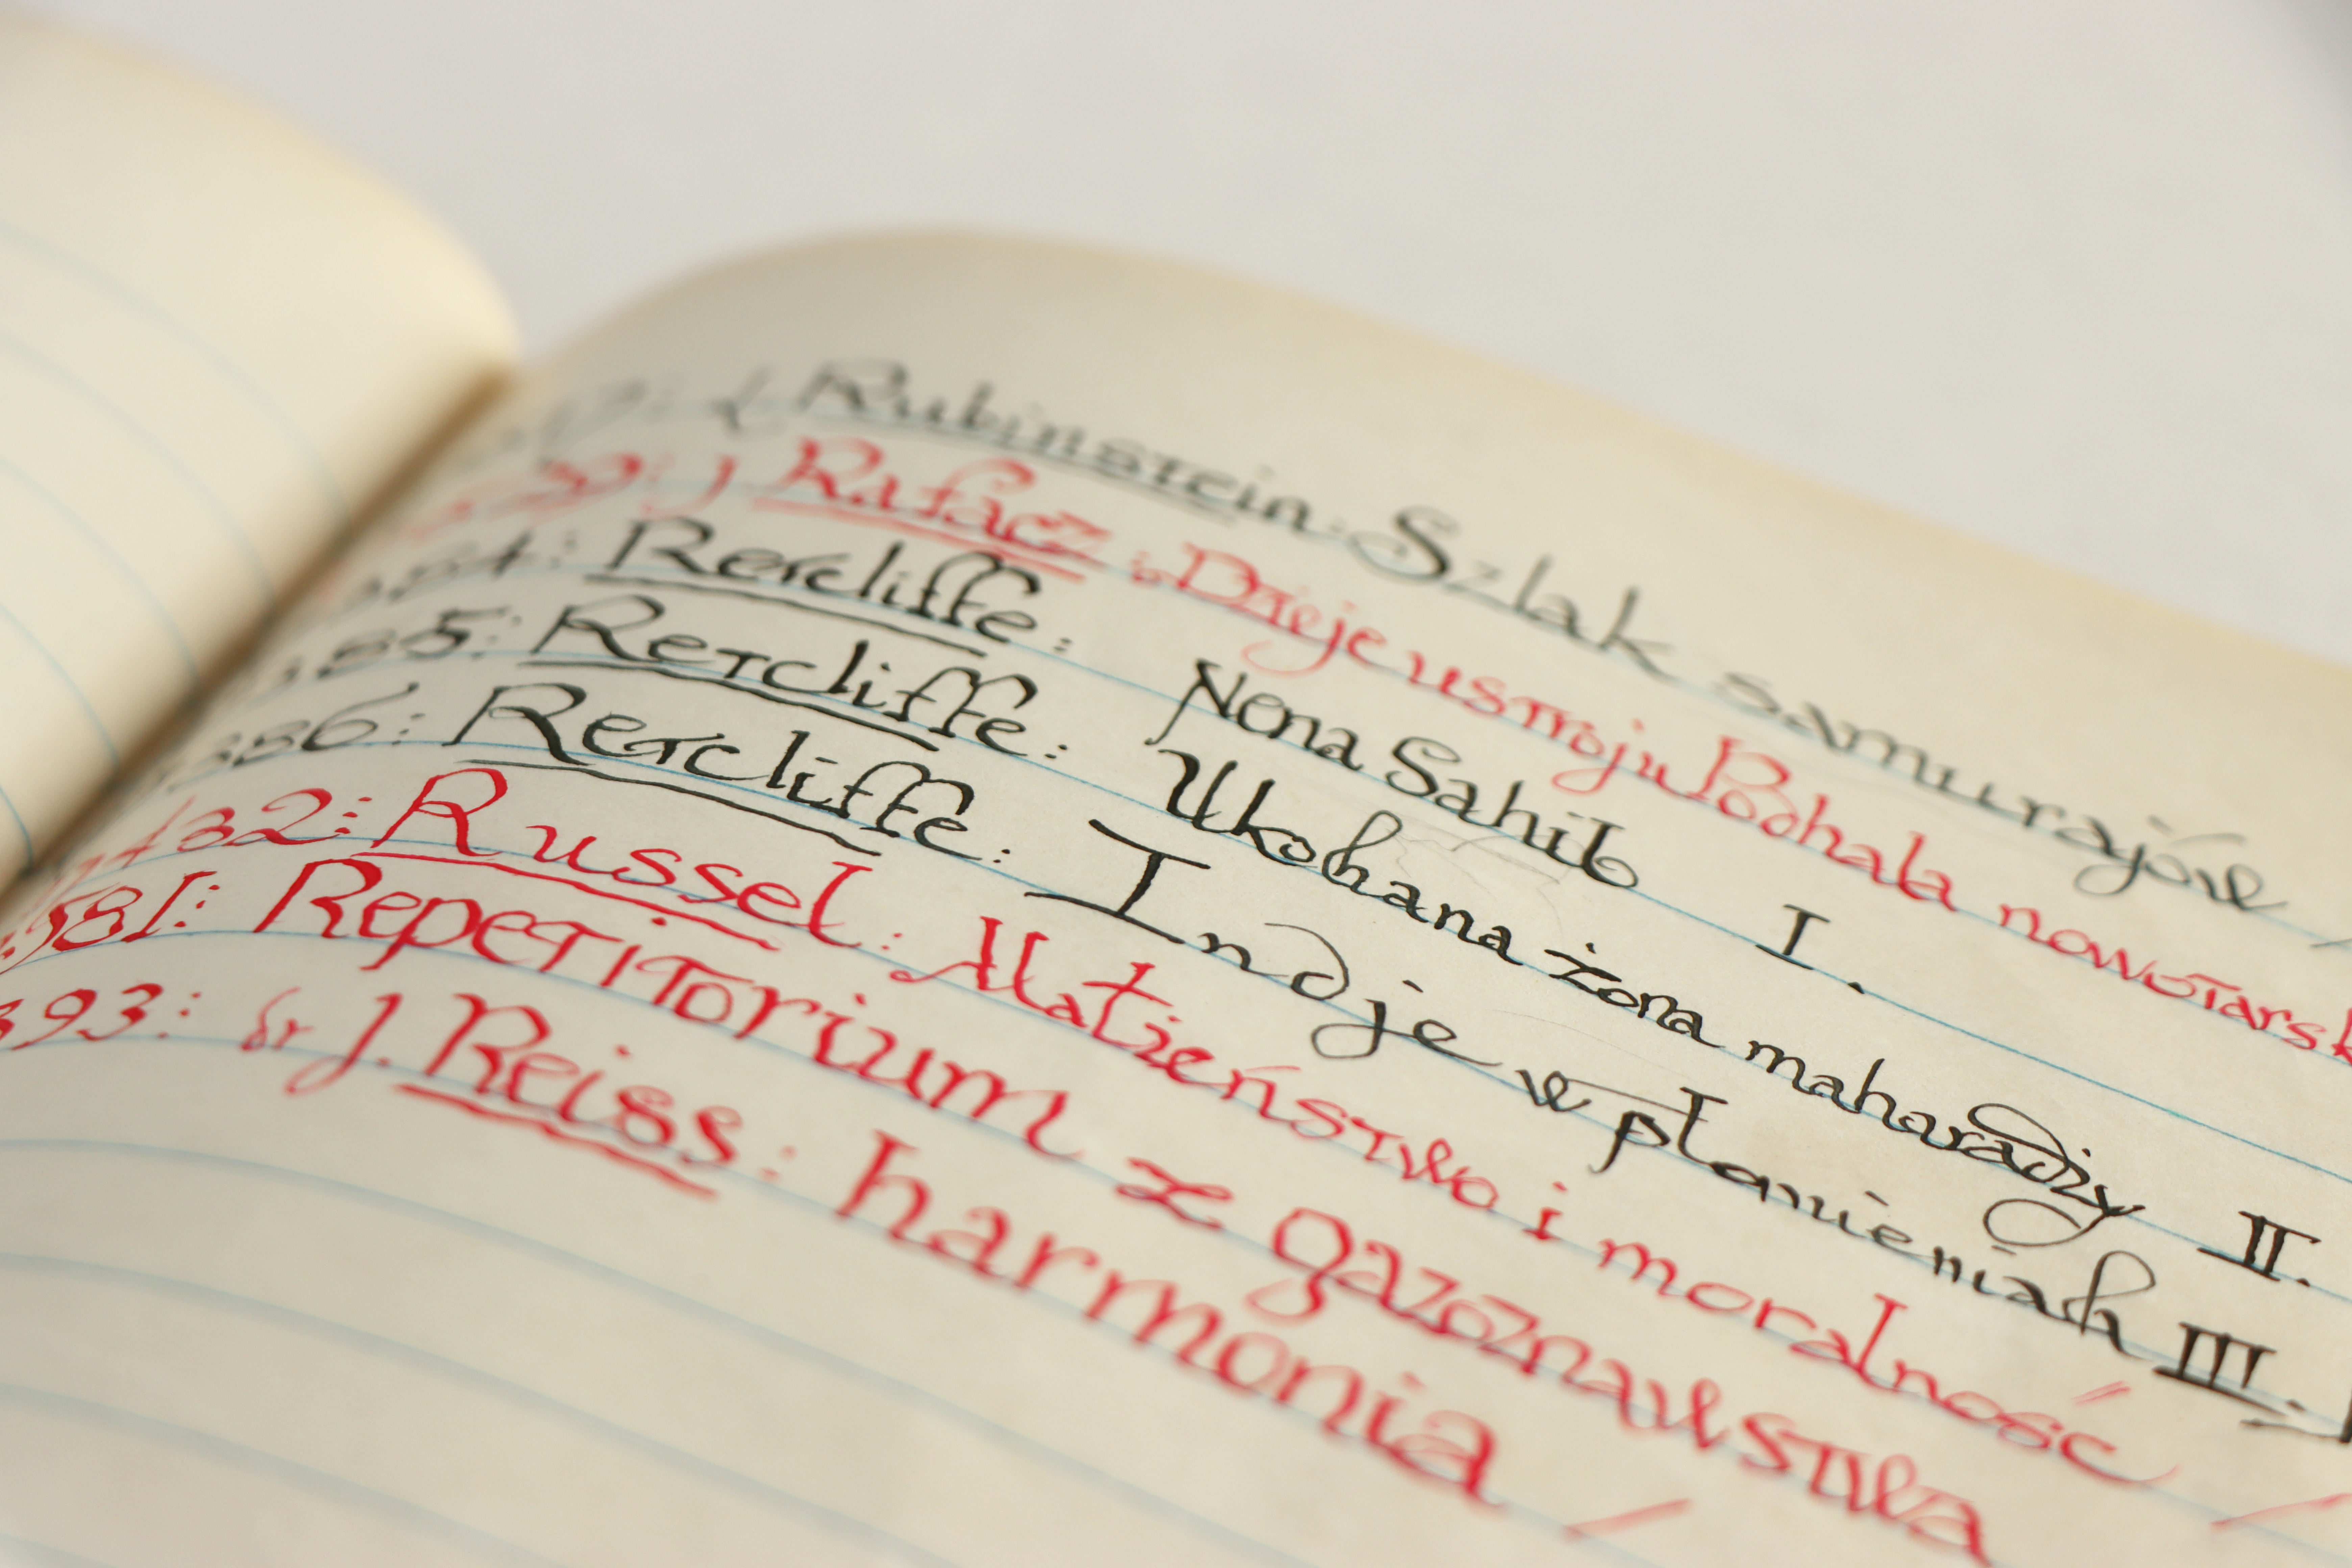 Rubinstein: Szlak samurajów
J Rafacz: Dzieje ustroju Podhala nowotarsk
Retcliffe: Nena Sahib I.
385: Retcliffe: Ukohana żona maharadży II.
386: Retcliffe: Indje w płomieniah III.
432: Russel: Małżeństwo i moralność
581: Repetitorium z gazoznawstwa
393: dr J. Reiss: harmonia